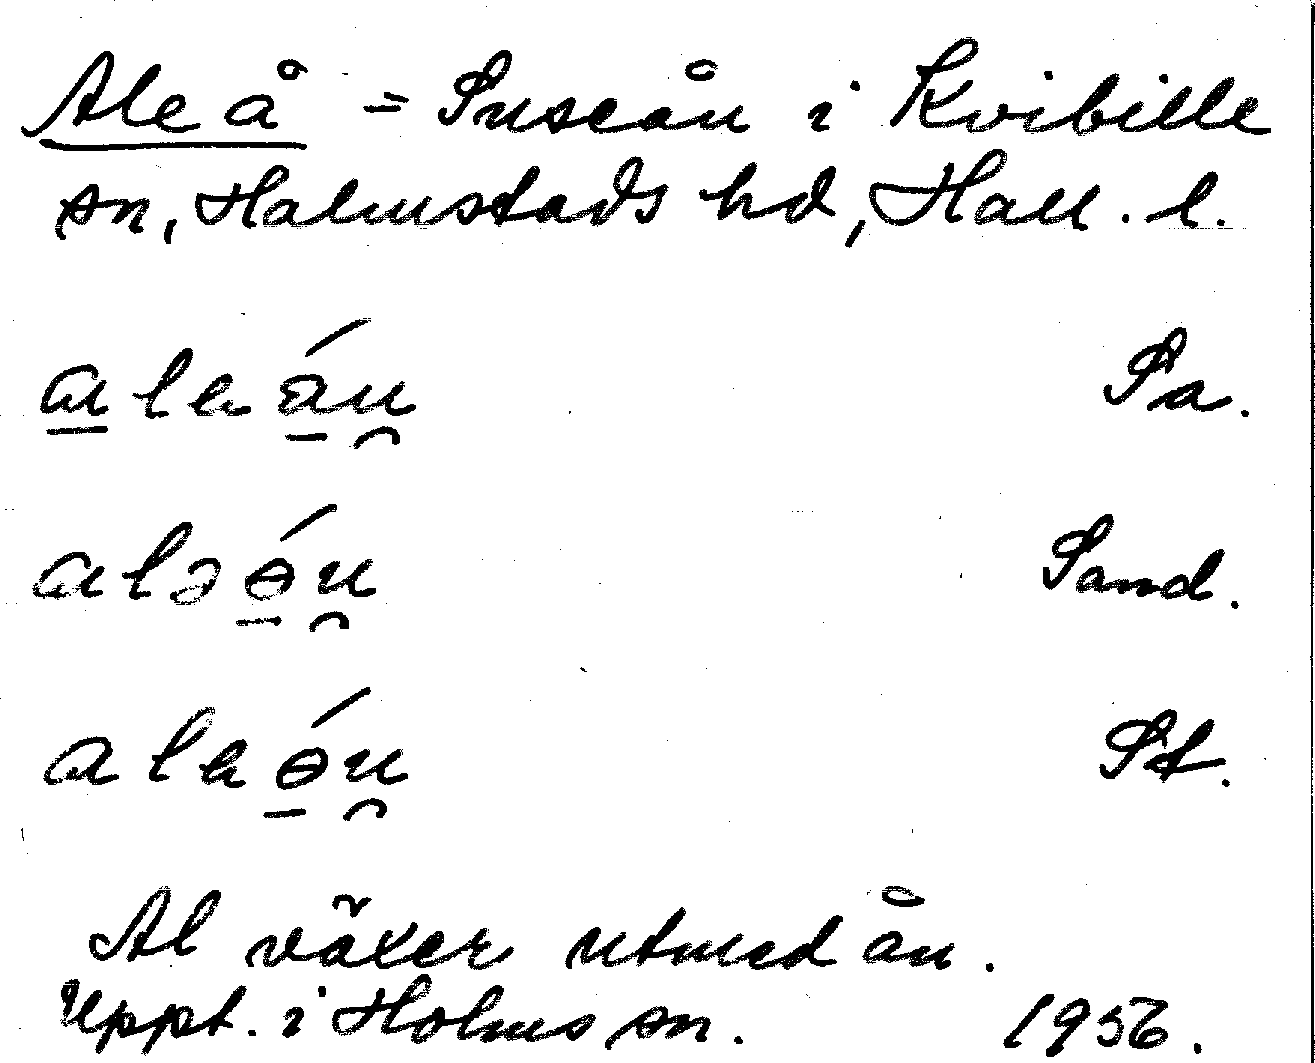 Ale å = Suseån i Kvibille
sn, Halmstads hd, Hall. l.
Sa.
Sand.
St.
Al växer utmed ån.
Uppt. i Holms sn. 1956.